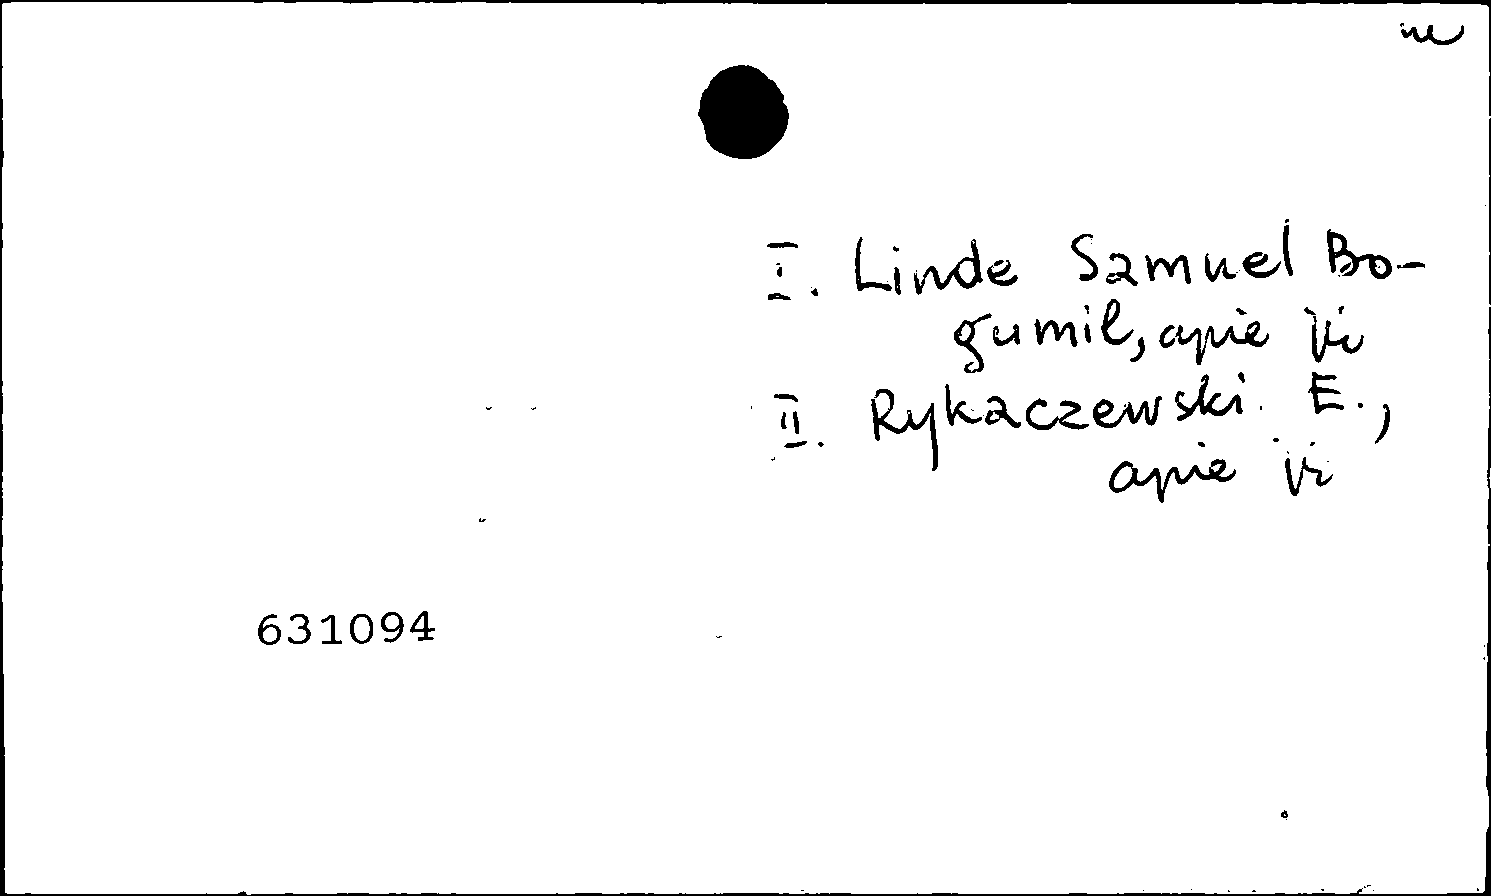 I. Linde Samuel Bo-
gumil, apie jį
II. Rykaczewski E.,
apie jį
631094